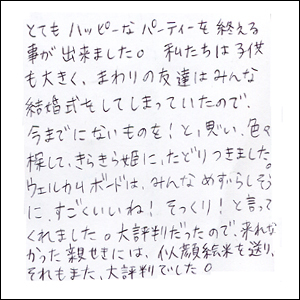 とてもハッピーなパーティーを終える
事が出来ました。 私たちは子供
も大きく、まわりの友達はみんな
結婚式をしてしまっていたので、
今までにないものを!と、思い、色々
探して、きらきら姫に、たどりつきました。
ウェルカムボードは、みんなめずらしそう
に、すごくいいね!そっくり!と言って
くれました。大評判だったので、来れな
かった親せきには、似顔絵米を送り、
それもまた、大評判でした。